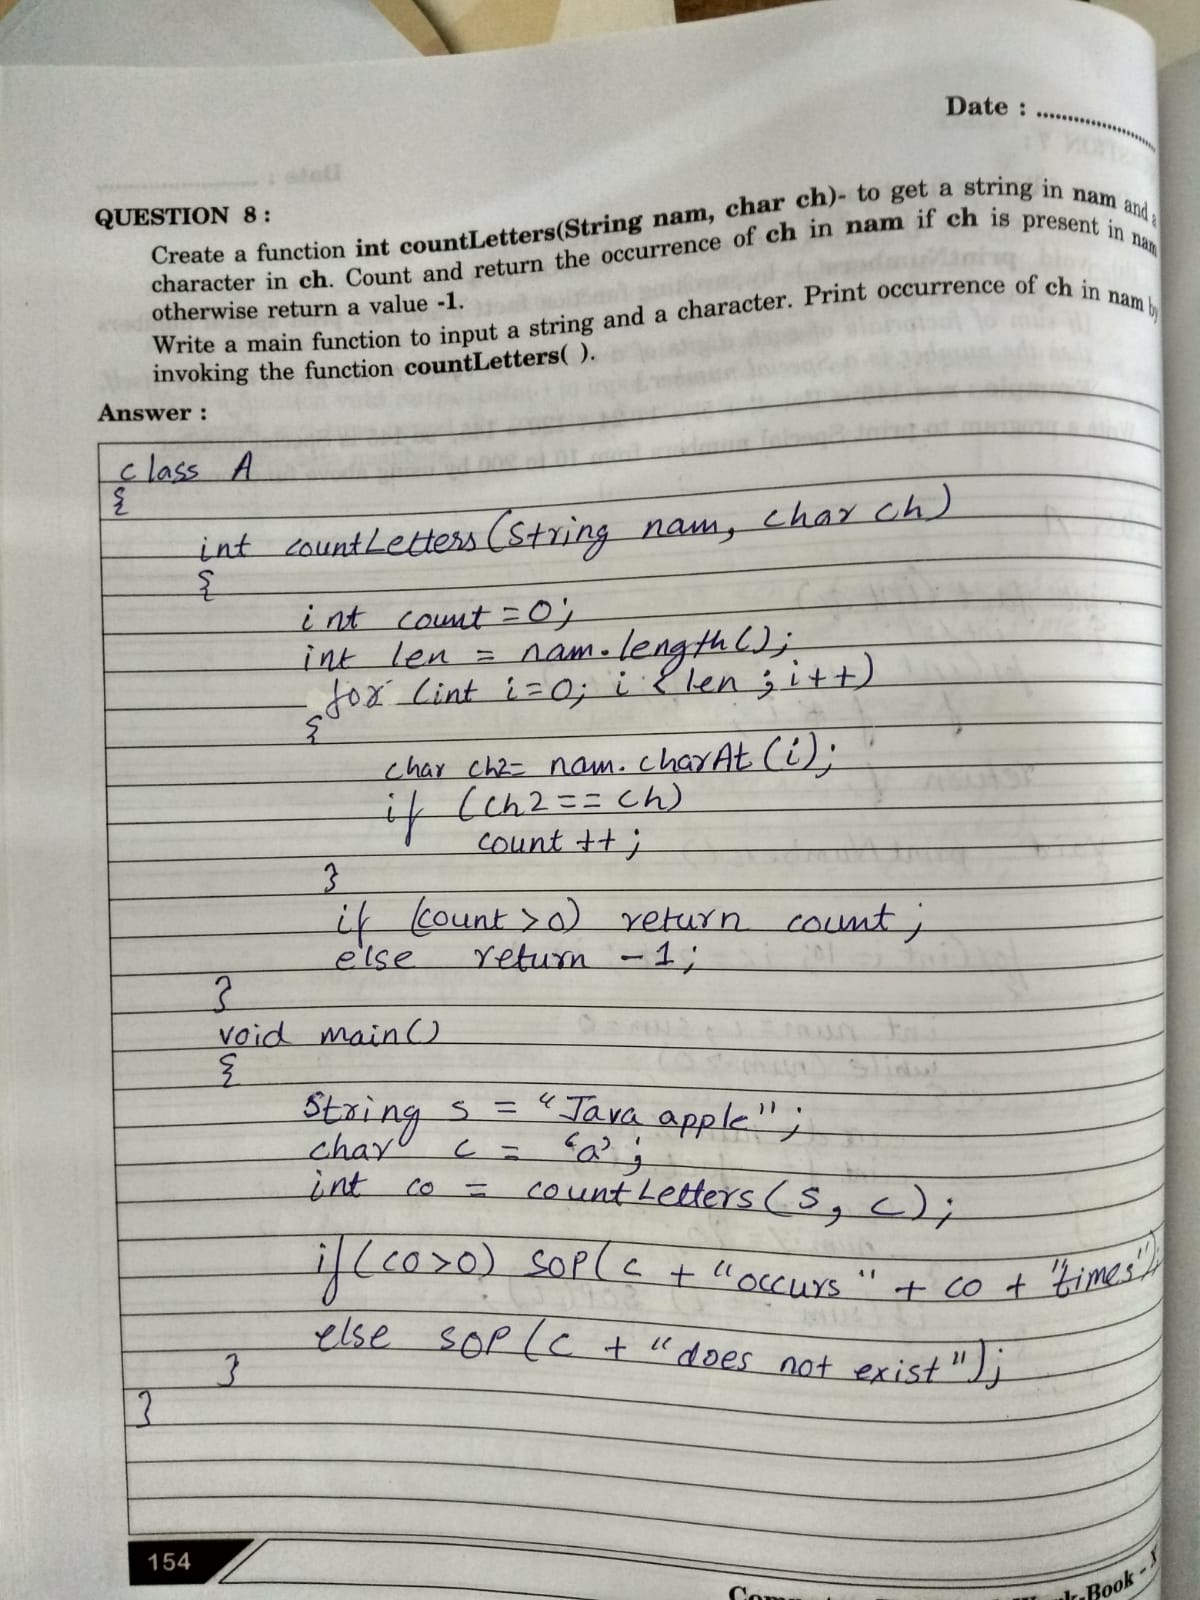 Date : ......................
QUESTION 8 :
Create a function int countLetters(String nam, char ch)- to get a string in nam and a
character in ch. Count and return the occurrence of ch in nam if ch is present in nam
otherwise return a value -1.
Write a main function to input a string and a character. Print occurrence of ch in nam by
invoking the function countLetters( ).
Answer :
class A
{
int countLetters (String nam, char ch)
{
int count = 0;
int len = nam.length();
for (int i=0; i < len ; i++)
{
char ch2= nam. charAt (i);
if (ch2 == ch)
count ++ ;
}
if (count > 0) return count ;
else return -1 ;
}
void main()
{
String s = "Java apple" ;
char c = 'a' ;
int co = countLetters (s, c) ;
if (co>0) SOP( c + "occurs" + co + "times");
else SOP (c + "does not exist") ;
}
}
154
-Book - X